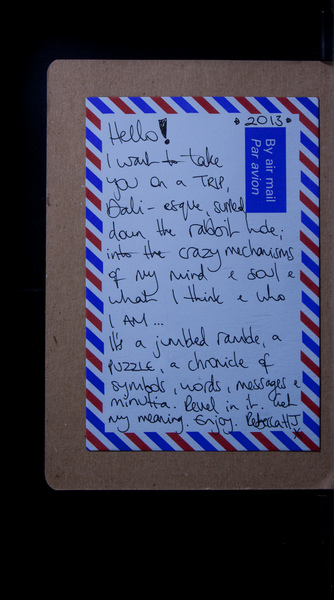 • 2013 •
Hello!
By air mail
Par avion
I want to take
you on a TRIP,
Dali-esque, surreal,
down the rabbit hole;
into the crazy mechanisms
of my mind & soul &
what I think & who
I AM...
It's a jumbled ramble, a
PUZZLE, a chronicle of
symbols, words, messages &
minutia. Revel in it. Get
my meaning. Enjoy. RebeccaHJ
x